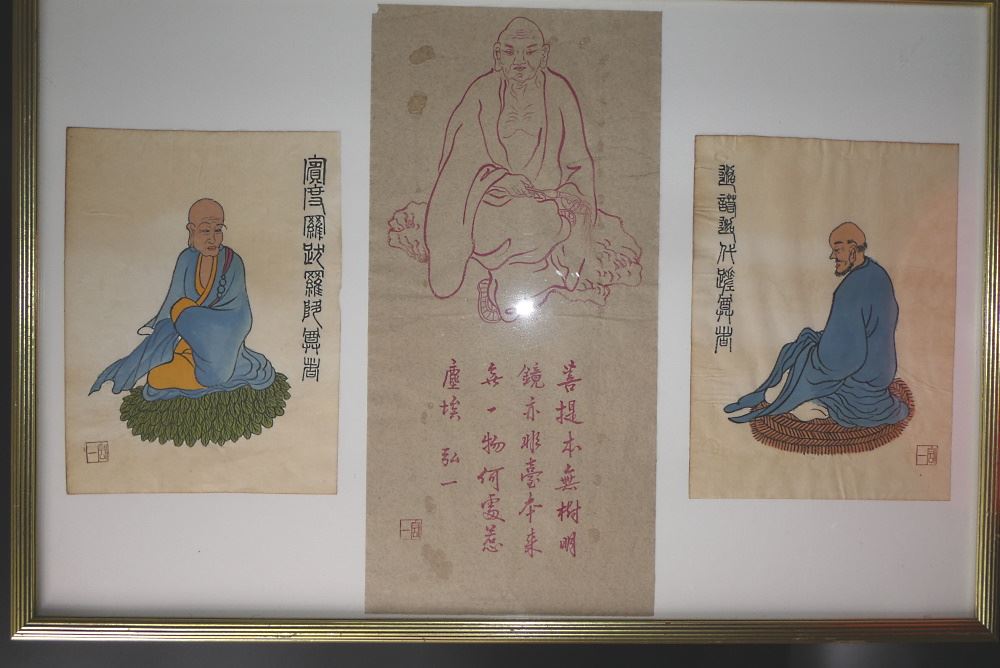 賓度羅跋羅陀尊者
菩提本無樹明
鏡亦非臺本来
無一物何處惹
塵埃 弘一
迦諾迦伐蹉尊者